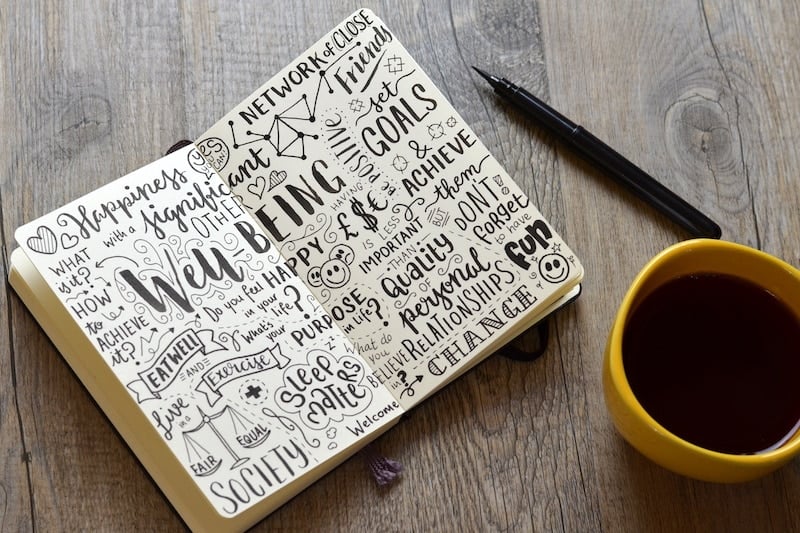 Happiness
with a significant
OTHER
yes
YOU CAN
WHAT
is it?
HOW
to
ACHIEVE
it?
Well BEING
Do you feel HAPPY
in your
life?
What's
your PURPOSE
in life?
EATWELL!
AND
Exercise
Sleep
MATTERS
live
in a
FAIR
EQUAL
SOCIETY
NETWORK of CLOSE
Friends
be
POSITIVE
set
GOALS
& ACHIEVE
them
HAVING
£$€
IS LESS
IMPORTANT
THAN
BUT
DON'T
forget
to have
fun
Quality
OF
personal
RELATIONSHIPS
What do
you
BELIEVE
in?
Welcome
CHANGE